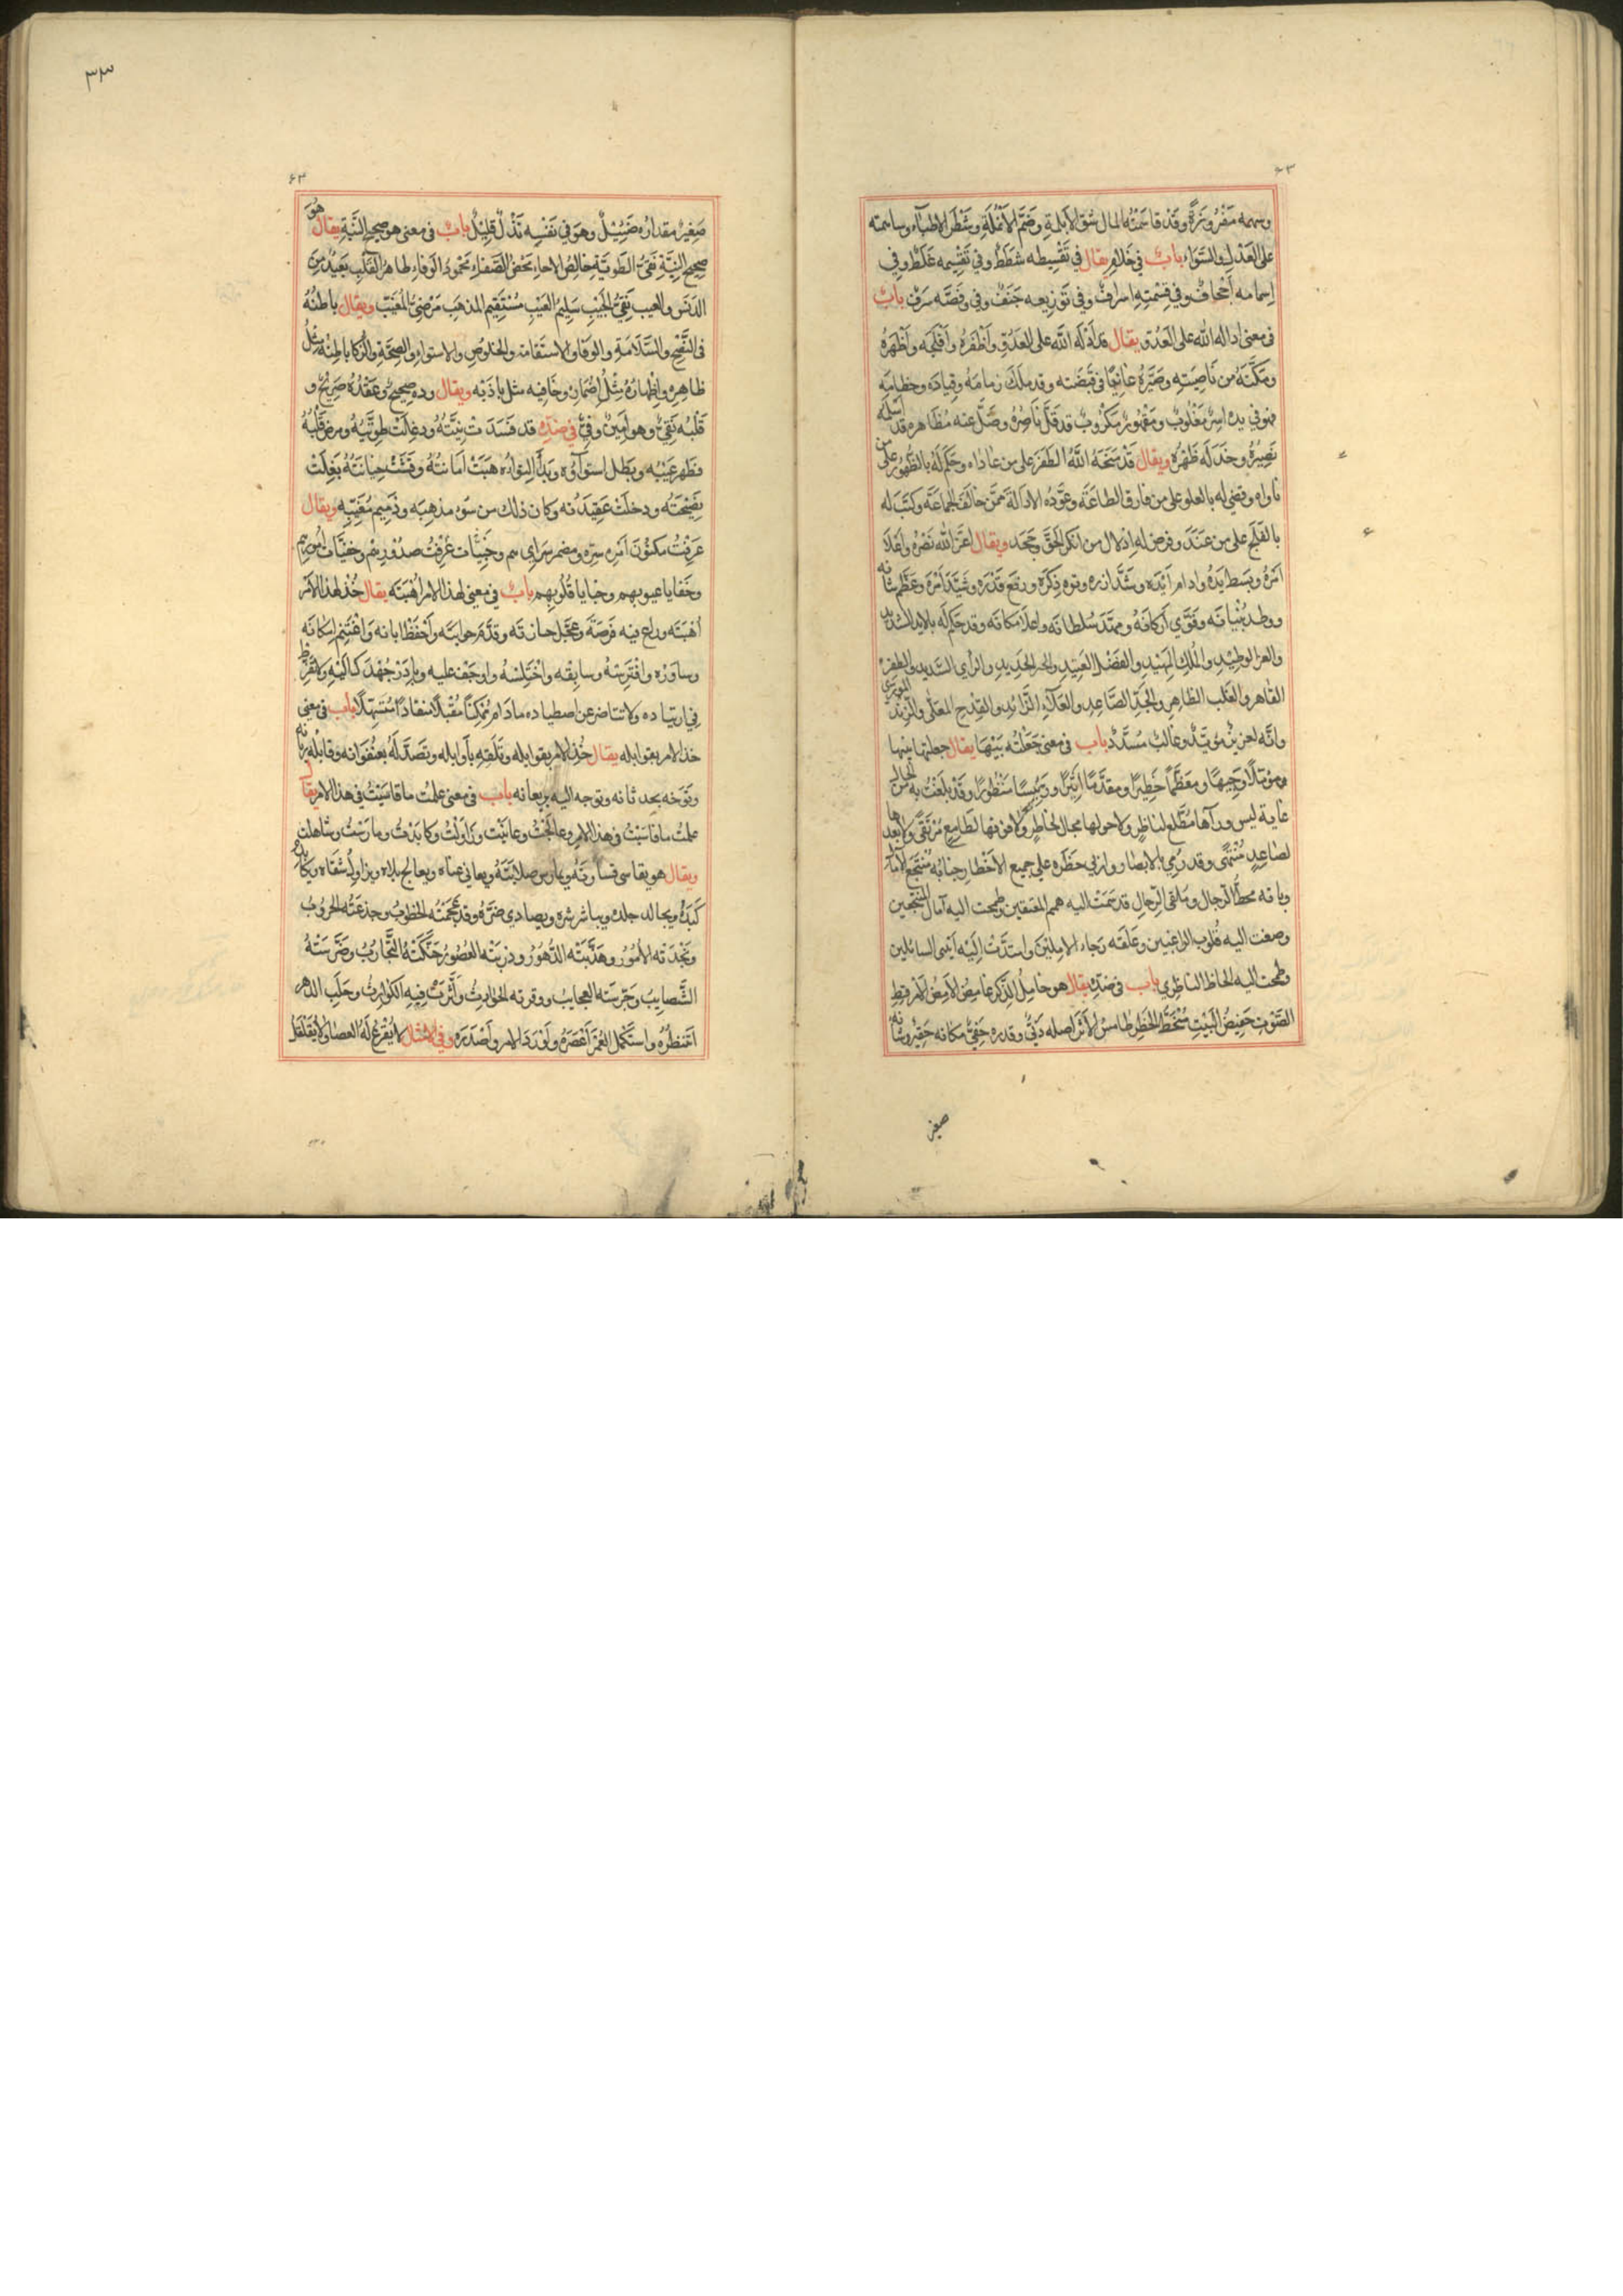 ٦٣
وسهمه مَفْرُوزَةً وقَدْ قاسَمْتُهُ المال شقَّ الأبلمةِ وضَمَّ الأنْمُلَةِ وشَطْرَ الاطباء وساهمته
على العَدْلِ والسَّوَاءِ بابٌ في خلافه يقال في تَقْسِيطه شَطَطٌ وفي تَقْسِيمه غَلَطٌ وفي
إسهامه إجْحافٌ وفي قِسْمَتِهِ اسرافٌ وفي تَوْزِيعه جَنَفٌ وفي وفَضّه سَرَفٌ بابٌ
في معنى اداله الله على العَدُوّ يقال قد أدَالَه اللَّه على العَدُوّ وأظْفَرَهُ وأفْلَجَه وأظْهَرَهُ
ومَكَّنَهُ من نَاصِيَتِهِ وصَيَّرَهُ عَانِيًا في قَبْضَته وقد مَلَكَ زمامَهُ وقِيادَه وخطامَهِ
فهو في يده اسِيْرٌ مَغْلُوبٌ ومَقْهُورٌ مَكْرُوبٌ قد قَلَّ نَاصِرُهُ وضَلَّ عنه مُظَاهِره قد اسْلَمَهُ
نَصِيرُهُ وخَذَلَه ظَهْرُه ويقال قَدْ مَنَحَهُ اللَّهُ الظَفَرَ على من عاداه وحَكَمَ لَهُ بالظُّهُور على من
ناواه وقضى له بالعلو على من فارق الطاعَةَ وعَوَّدَه الادالَةَ ممَّن خالَفَ الجماعَةَ وكَتَبَ له
بالفَلَجِ على من عَنَدَ وفرض له إذلال من انكر الحَقَّ وجَحَد ويقال اعَزَّ اللَّه نَصْرَهُ واعْلَا
امْرَهُ وبَسَط يَدَهُ وادام ايْدَه وشَدَّ ازره ونوه ذِكرَه ورفَع قَدْرَه وشَيَّدَ أمْرَه وعَظَّم شانه
ووطد بُنْيانَه وقَوَّى أركانَهُ ومَهَّدَ سُلطانَه واعلا مكانَه وقد حَكَمَ له بالايد الشديد
والعز الوطِيْدِ والمُلكِ المَهِيْدِ والفَضْلِ العَتِيْدِ والجد الجَدِيدِ والرأي السَّدِيد والظفر
القاهر والغلب الظاهِر والجَدِّ الصَّاعِد والعَلَاءِ الزَّائد والقِدْحِ المعَلَّى والزنْدِ المورى
وانَّه لعزيزٌ مؤيّدٌ وغالبٌ مُسَدَّدٌ باب في معنى جَعَلْتُه بَيْنَها يقال جعلتها بينها
ومؤثلًا ووَجِيهًا ومعَظَّمًا خَطِيرًا ومقدَّمًا اثِيرًا ورَئِيسًا مَنْظُورًا وقَدْ بَلَغْتُ به من الحال
غاية ليس وراءها مُطَّلَع لناظِرٍ ولا حولها مجال لخاطِرٍ ولا فوقها لطامِعٍ مُرْتَقًى ولا بعدها
لصَاعِدٍ مُنْتَهًى وقد رُمِيَ بالابصار وازلى خطَرُه على جميع الأخْطار جنابُه مُنْتَجَعُ الآمال
وبابه محطُّ الرّجال وملقى الرّحالِ قد سَمَتْ اليه همم المعتفين وطمحت اليه آمال المنتجعين
وصغت اليه قُلوب الراغبين وعَلَقَه رَجاءُ الآمِلِيْنَ وامتدَّتْ اِلَيْه ايْدى السائلين
وطمحت اليه الحاظ الناظرين باب في ضدّه يقال هو خامِلُ الذِّكر غامِضُ الأمر
الصَّوْت خَفِيضُ البَيْتِ مُنْحَطُّ الخَطَرِ طامسُ الأثر اصله دَنِيٌّ وقدره خَفِيٌّ مكانه حَقِيْرٌ وشأنه
صغير
٣٣
٦٤
صَغِيرٌ مقدارُه ضَئِيْلٌ وهوَ في نَفْسِه نَذْلٌ قليْلٌ بابٌ في معنى هو صحيح النيَّة يقال هُوَ
صحِيح النِيَّةِ نَقِيُّ الطَوِيَّةِ خالِصُ الاخاءِ مَحْضُ الصَّفاءِ مَحْمُودُ الوَفاءِ طاهرُ القَلْبِ بَعِيْدٌ مِنَ
الدَنَسِ والعيب نَقِيُّ الجَيْبِ سَلِيمُ الغَيْبِ مُسْتَقِيمُ المذهَب مَرْضِيُّ المُغَيَّب ويقال باطنُهُ
في النُّصْح والسَّلَامَةِ والوَفا والاستقامة والخلوصِ والاستواء والصِحَّةِ والزكا باطنه مثلُ
ظاهِرِه واِظْهارُهُ مثلُ اِضْمارِه وخافِيه مثل بادَيْه ويقال وده صحِيحٌ وعَقْدُهُ صَرِيحٌ و
قَلْبُه نَقِيٌّ وهو أمِيْنٌ وَفِيٌّ في ضدّه قد فَسَدَتْ نِيَّتُهُ ودغِلَتْ طوِيَّتُهُ ومرض قَلْبُهُ
وظهر عَيْبُه وبَطل استواؤُه وبَدا اِلتِوَاؤه هَبَتْ امانتُهُ وفَشَتْ خِيانَتُهُ نَغِلَتْ
نَصِيْحَتُه ودخلَتْ عَقِيْدَته وكان ذلك من سُوء مذهِبَه وذَمِيم مُغَيّبِه ويقال
عَرَفْتُ مكنُونَ امْرِه سِرِّه ومضمر سَرايرهم وخَبِيْئات عُرِفَتْ صدُوْرِهِمْ وخفيّات امورهم
وخفايا عيوبهم وخبايا قُلُوبِهم بابٌ في معنى لهذا الامر اُهْبَتَه يقال خُذْ لهذا الأمْر
اُهْبَتَه وراع فيه فُرْصَتَهُ وعَجِّل حازته وقدِّم جوابَتَه وأحْفَظ ابانه وَاغْتَنِم امكانَه
وساوره وافْتَرِسْهُ وسابِقْه واخْتَلِسْه واوجَفْ عليه وبادِرْ جُهْدَ كمالته ولا تُفَرِّط
في ارتياده ولا تتاخر عن اصطياده مادام مُمْكِنًا مُقْبِلًا منقادًا مُسْتَهِلًّا باب في معنى
خذ الامر بقوابله يقال خُذ الأمر بقوابله وتَلَقَّهِ بأوايِله وتَصَدَّ لَهُ بعُنْفُوَانه وقَابِلْه بزمانه
وتَوَخَّه بحدثانه وتوجه اليه بريعانه باب في معنى علمْتُ ما قاسَيْتُ في هذا الامر يقال
علمْتُ ما قاسَيْتُ في هذا الأمر وعالجْتُ وعانَيْت وزَاوَلْتُ وكابَدْتُ ومارَسْتُ وشاهلت
ويقال هو يقاسى قساوتَهُ ويمارس صلابَتَهُ ويعانى عناءه ويعالج بلاءه ويزاوِلُ شقاه ويكابد
كَبَدَهُ ويجالد جلده ويباشر شره ويصادي ضرَّهُ وقد عَجَمَتْهُ الخطُوبُ وجذعَتْه الحَرُوبُ
ونَجَّدَته الأمُورُ وهَذَّبَتْه الدُّهُورُ ودرِبَتْه العُصُورُ حَنَّكَتْهُ التَّجَارُبُ وضَرَّسَتْهُ
النَّصايِبُ وجَرَّسَتْه العجايبُ ووقرته الحَوادِثُ واَثَّرتْ فِيهِ الكَوارِثُ وحَلَبَ الدهر
اشطُرُه واستَكْمل العُمْر اعْصُرَهُ واَوْرَدَ الامر واَصْدَرَه وفى الامثال لا يُقْرَعُ لَهُ العصا ولا يُقَلْقَلُ